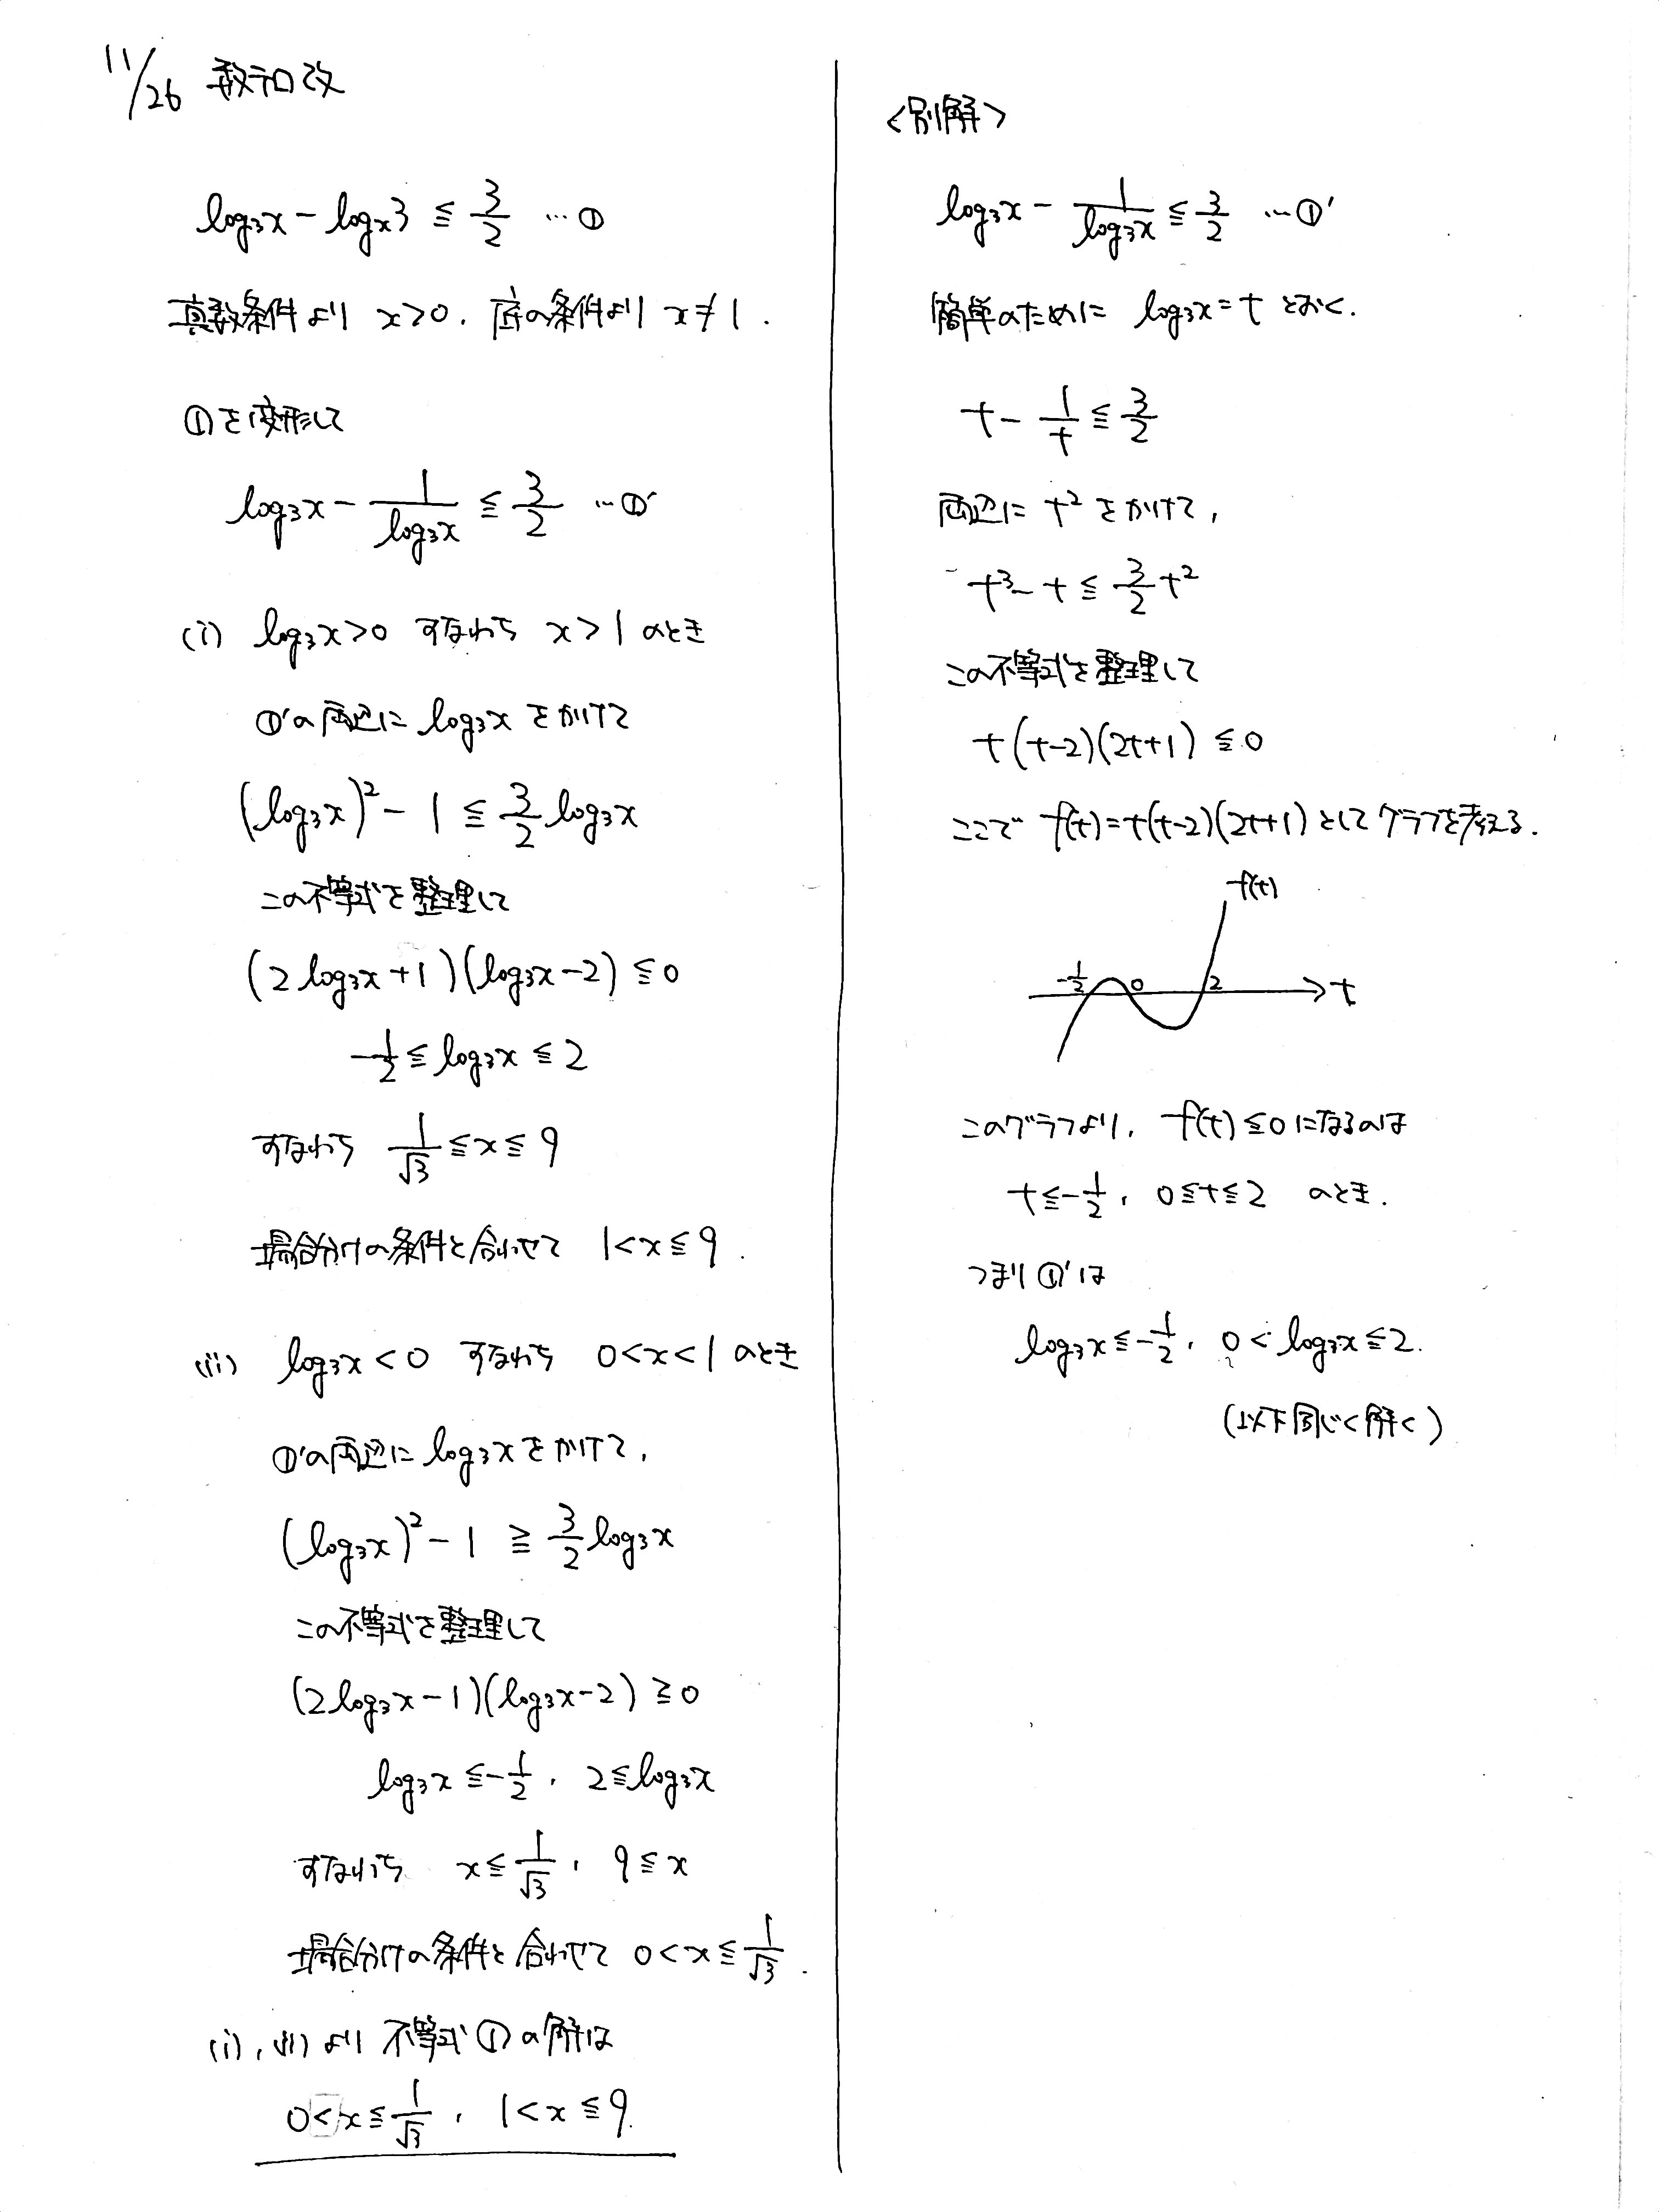 11/26 数テロ改
log₃x - logₓ3 ≦ 3/2 …①
真数条件より x>0, 底の条件より x≠1.
①を変形して
log₃x - 1/log₃x ≦ 3/2 …①'
(i) log₃x>0 すなわち x>1 のとき
①'の両辺に log₃x をかけて
(log₃x)² - 1 ≦ 3/2 log₃x
この不等式を整理して
(2log₃x+1)(log₃x-2) ≦ 0
-1/2 ≦ log₃x ≦ 2
すなわち 1/√3 ≦ x ≦ 9
場合分けの条件と合わせて 1<x≦9.
(ii) log₃x<0 すなわち 0<x<1 のとき
①'の両辺に log₃x をかけて,
(log₃x)² - 1 ≧ 3/2 log₃x
この不等式を整理して
(2log₃x-1)(log₃x-2) ≧ 0
log₃x ≦ -1/2, 2 ≦ log₃x
すなわち x ≦ 1/√3, 9 ≦ x
場合分けの条件と合わせて 0<x≦1/√3.
(i), (ii) より 不等式①の解は
0<x≦1/√3, 1<x≦9.
<別解>
log₃x - 1/log₃x ≦ 3/2 …①'
簡単のために log₃x=t とおく.
t - 1/t ≦ 3/2
両辺に t² をかけて,
t³-t ≦ 3/2 t²
この不等式を整理して
t(t-2)(2t+1) ≦ 0
ここで f(t)=t(t-2)(2t+1) としてグラフを考える.
f(t)
-1/2 0 2 t
このグラフより, f(t)≦0になるのは
t≦-1/2, 0≦t≦2 のとき.
つまり①'は
log₃x≦-1/2, 0<log₃x≦2.
(以下同じく解く)